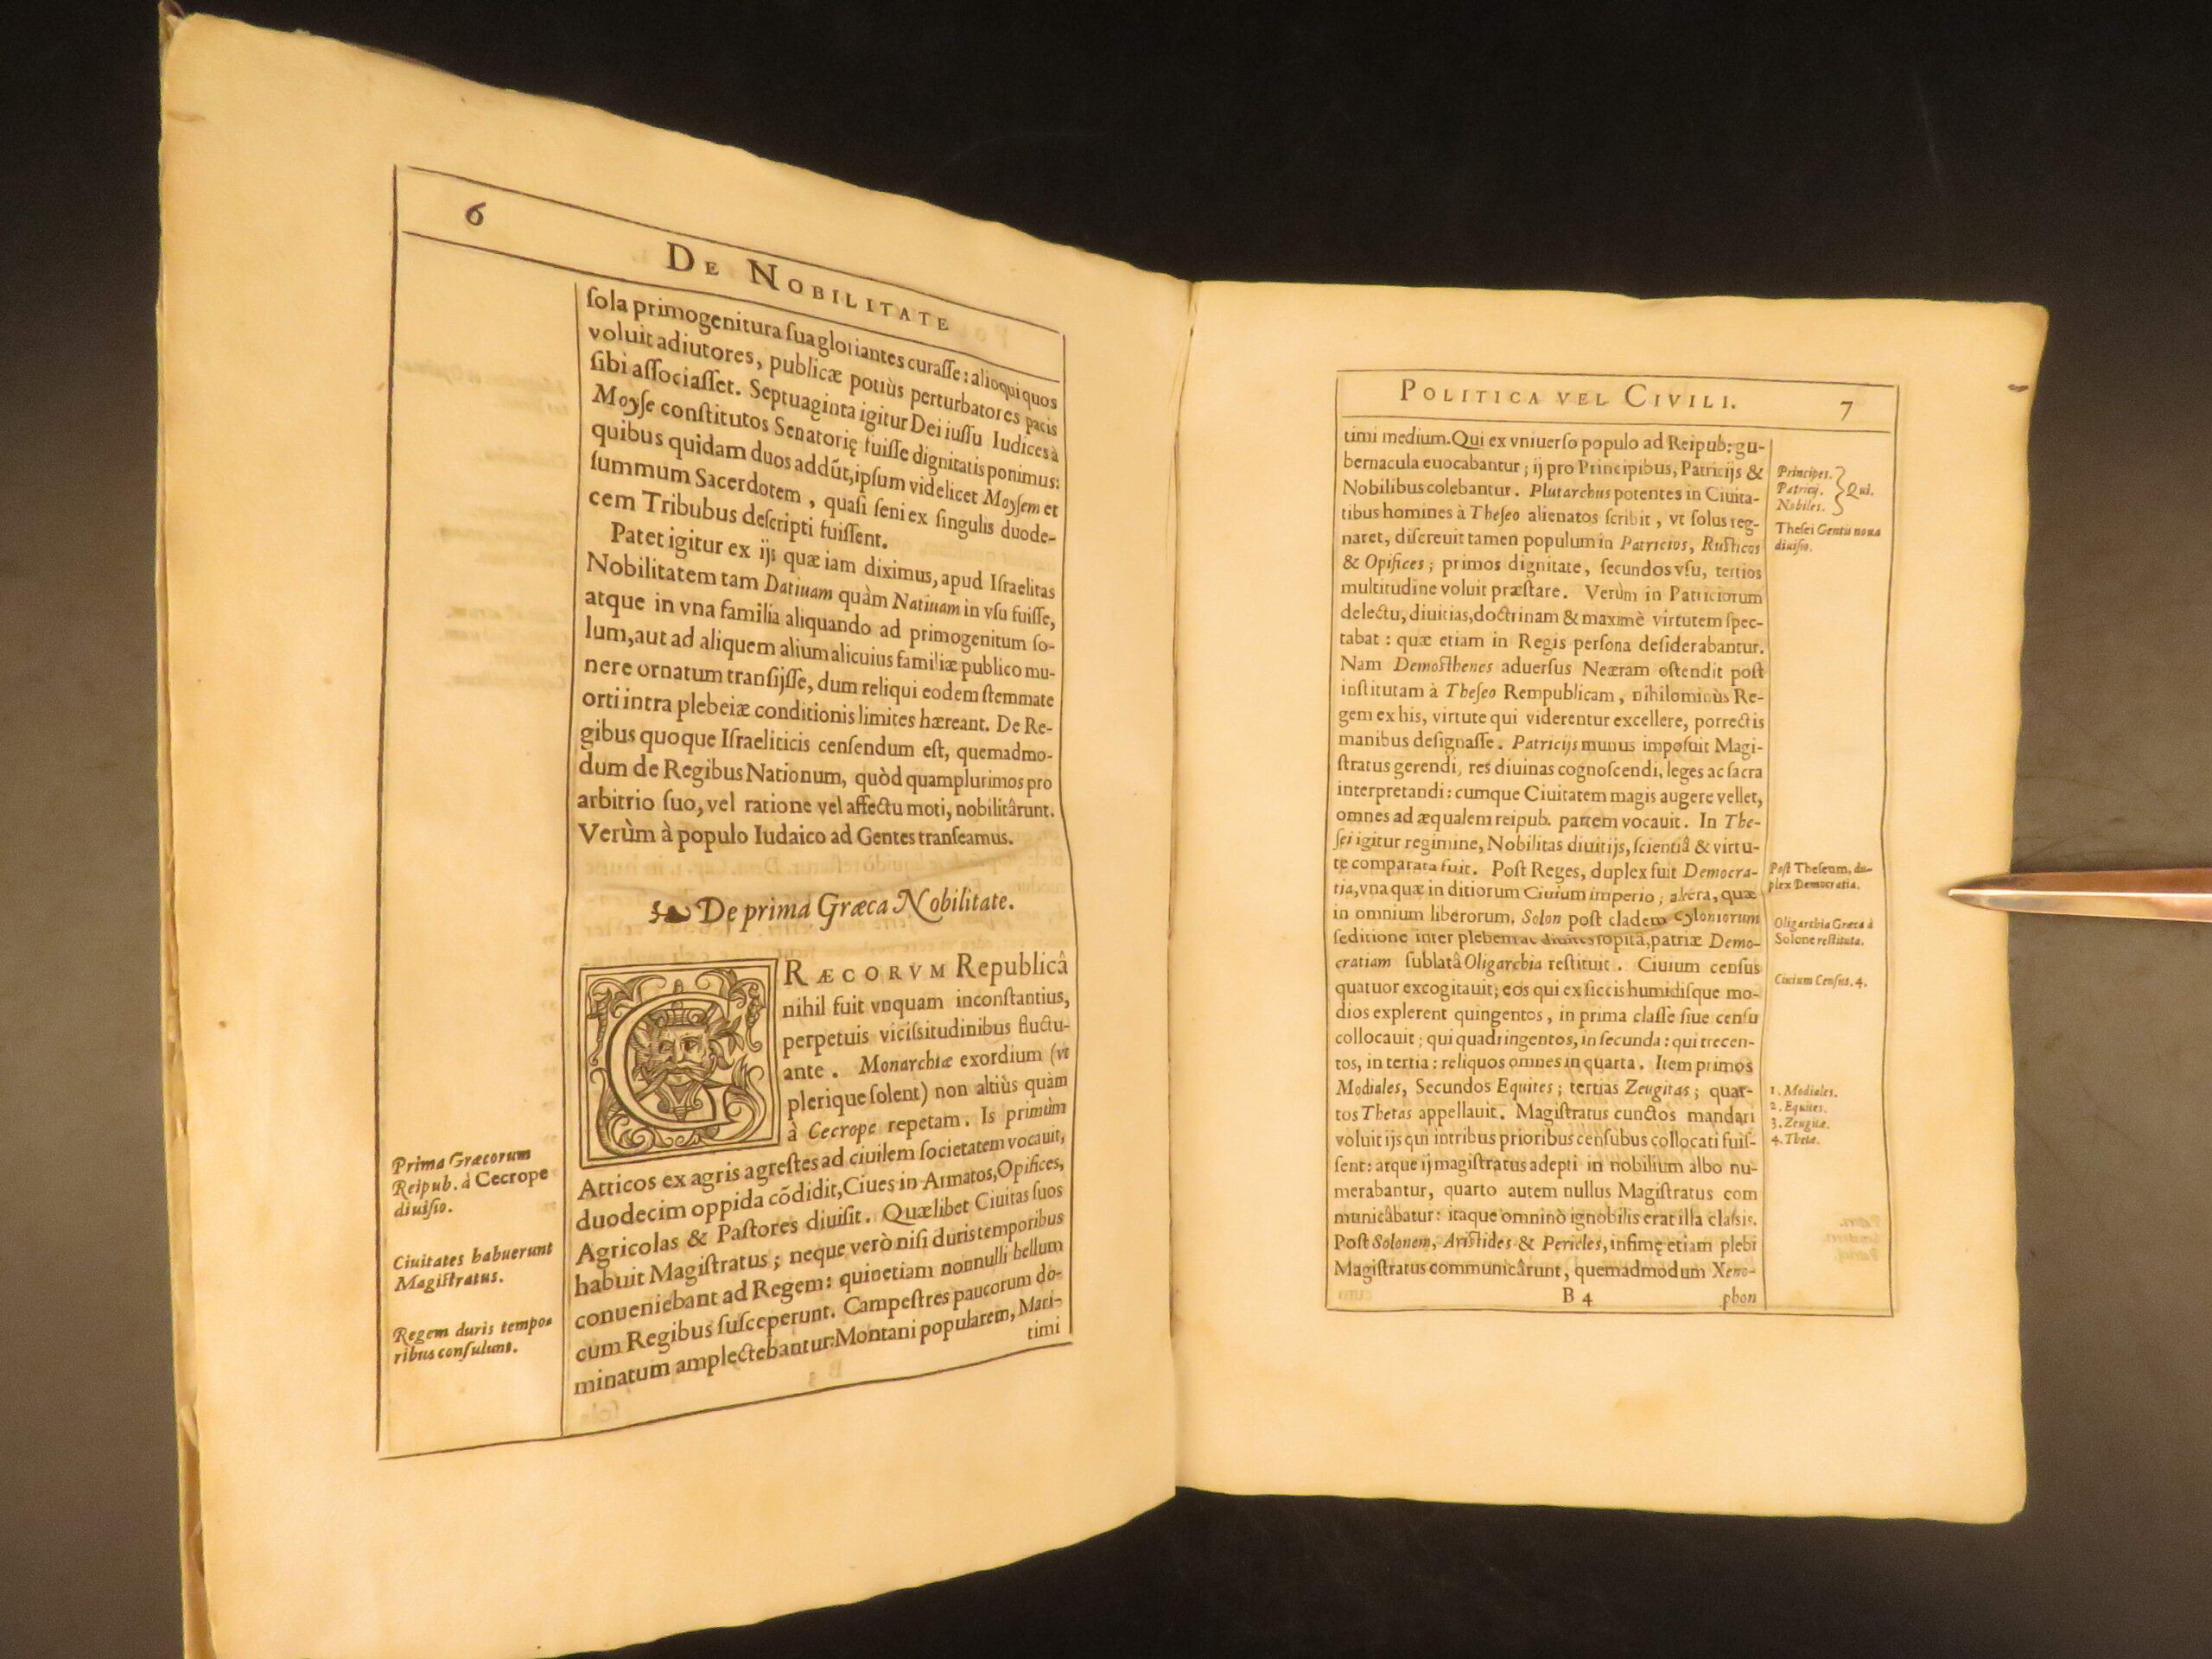 6
DE NOBILITATE
ſola primogenitura ſua gloriantes curaſſe: alioqui quos
voluit adiutores, publicæ potiùs perturbatores pacis
ſibi aſſociaſſet. Septuaginta igitur Dei iuſſu Iudices à
Moyſe conſtitutos Senatorię fuiſſe dignitatis ponimus:
quibus quidam duos addūt, ipſum videlicet Moyſem et
ſummum Sacerdotem, quaſi ſeni ex ſingulis duode-
cem Tribubus deſcripti fuiſſent.
Patet igitur ex ijs quæ iam diximus, apud Iſraelitas
Nobilitatem tam Datiuam quàm Natiuam in vſu fuiſſe,
atque in vna familia aliquando ad primogenitum ſo-
lum, aut ad aliquem alium alicuius familiæ publico mu-
nere ornatum tranſijſſe, dum reliqui eodem ſtemmate
orti intra plebeiæ conditionis limites hæreant. De Re-
gibus quoque Iſraeliticis cenſendum eſt, quemadmo-
dum de Regibus Nationum, quòd quamplurimos pro
arbitrio ſuo, vel ratione vel affectu moti, nobilitârunt.
Verùm à populo Iudaico ad Gentes tranſeamus.
De prima Græca Nobilitate.
GRÆCORVM Republicâ
nihil fuit vnquam inconſtantius,
perpetuis viciſsitudinibus fluctu-
ante. Monarchiæ exordium (vt
plerique ſolent) non altiùs quàm
à Cecrope repetam. Is primùm
Atticos ex agris agreſtes ad ciuilem ſocietatem vocauit,
duodecim oppida cōdidit, Ciues in Armatos, Opifices,
Agricolas & Paſtores diuiſit. Quælibet Ciuitas ſuos
habuit Magiſtratus; neque verò niſi duris temporibus
conueniebant ad Regem: quinetiam nonnulli bellum
cum Regibus ſuſceperunt. Campeſtres paucorum do-
minatum amplectebantur: Montani popularem, Mari-
timi
Prima Græcorum
Reipub. à Cecrope
diuiſio.
Ciuitates habuerunt
Magiſtratus.
Regem duris tempo-
ribus conſulunt.
POLITICA VEL CIVILI.
7
timi medium. Qui ex vniuerſo populo ad Reipub: gu-
bernacula euocabantur; ij pro Principibus, Patricijs &
Nobilibus colebantur. Plutarchus potentes in Ciuita-
tibus homines à Theſeo alienatos ſcribit, vt ſolus reg-
naret, diſcreuit tamen populum in Patricios, Ruſticos
& Opifices; primos dignitate, ſecundos vſu, tertios
multitudine voluit præſtare. Verùm in Patriciorum
delectu, diuitias, doctrinam & maximè virtutem ſpec-
tabat: quæ etiam in Regis perſona deſiderabantur.
Nam Demoſthenes aduerſus Neæram oſtendit poſt
inſtitutam à Theſeo Rempublicam, nihilominùs Re-
gem ex his, virtute qui viderentur excellere, porrectis
manibus deſignaſſe. Patricijs munus impoſuit Magi-
ſtratus gerendi, res diuinas cognoſcendi, leges ac ſacra
interpretandi: cumque Ciuitatem magis augere vellet,
omnes ad æqualem reipub. partem vocauit. In The-
ſei igitur regimine, Nobilitas diuitijs, ſcientiâ & virtu-
te comparata fuit. Poſt Reges, duplex fuit Democra-
tia, vna quæ in ditiorum Ciuium imperio; altera, quæ
in omnium liberorum. Solon poſt cladem Cyloniorum
ſeditione inter plebem ac diuites ſopitâ, patriæ Demo-
cratiam ſublatâ Oligarchia reſtituit. Ciuium cenſus
quatuor excogitauit; eos qui ex ſiccis humidiſque mo-
dios explerent quingentos, in prima claſſe ſiue cenſu
collocauit; qui quadringentos, in ſecunda: qui trecen-
tos, in tertia: reliquos omnes in quarta. Item primos
Modiales, Secundos Equites; tertias Zeugitas; quar-
tos Thetas appellauit. Magiſtratus cunctos mandari
voluit ijs qui in tribus prioribus cenſubus collocati fuiſ-
ſent: atque ij magiſtratus adepti in nobilium albo nu-
merabantur, quarto autem nullus Magiſtratus com
municâbatur: itaque omninò ignobilis erat illa claſsis.
Poſt Solonem, Ariſtides & Pericles, infimę etiam plebi
Magiſtratus communicârunt, quemadmodum Xeno-
B 4
phon
Principes.
Patricij.
Nobiles.
Qui.
Theſei Gentis noua
diuiſio.
Poſt Theſeum, du-
plex Democratia.
Oligarchia Græca à
Solone reſtituta.
Ciuium Cenſus. 4.
1. Modiales.
2. Equites.
3. Zeugitæ.
4. Thetæ.